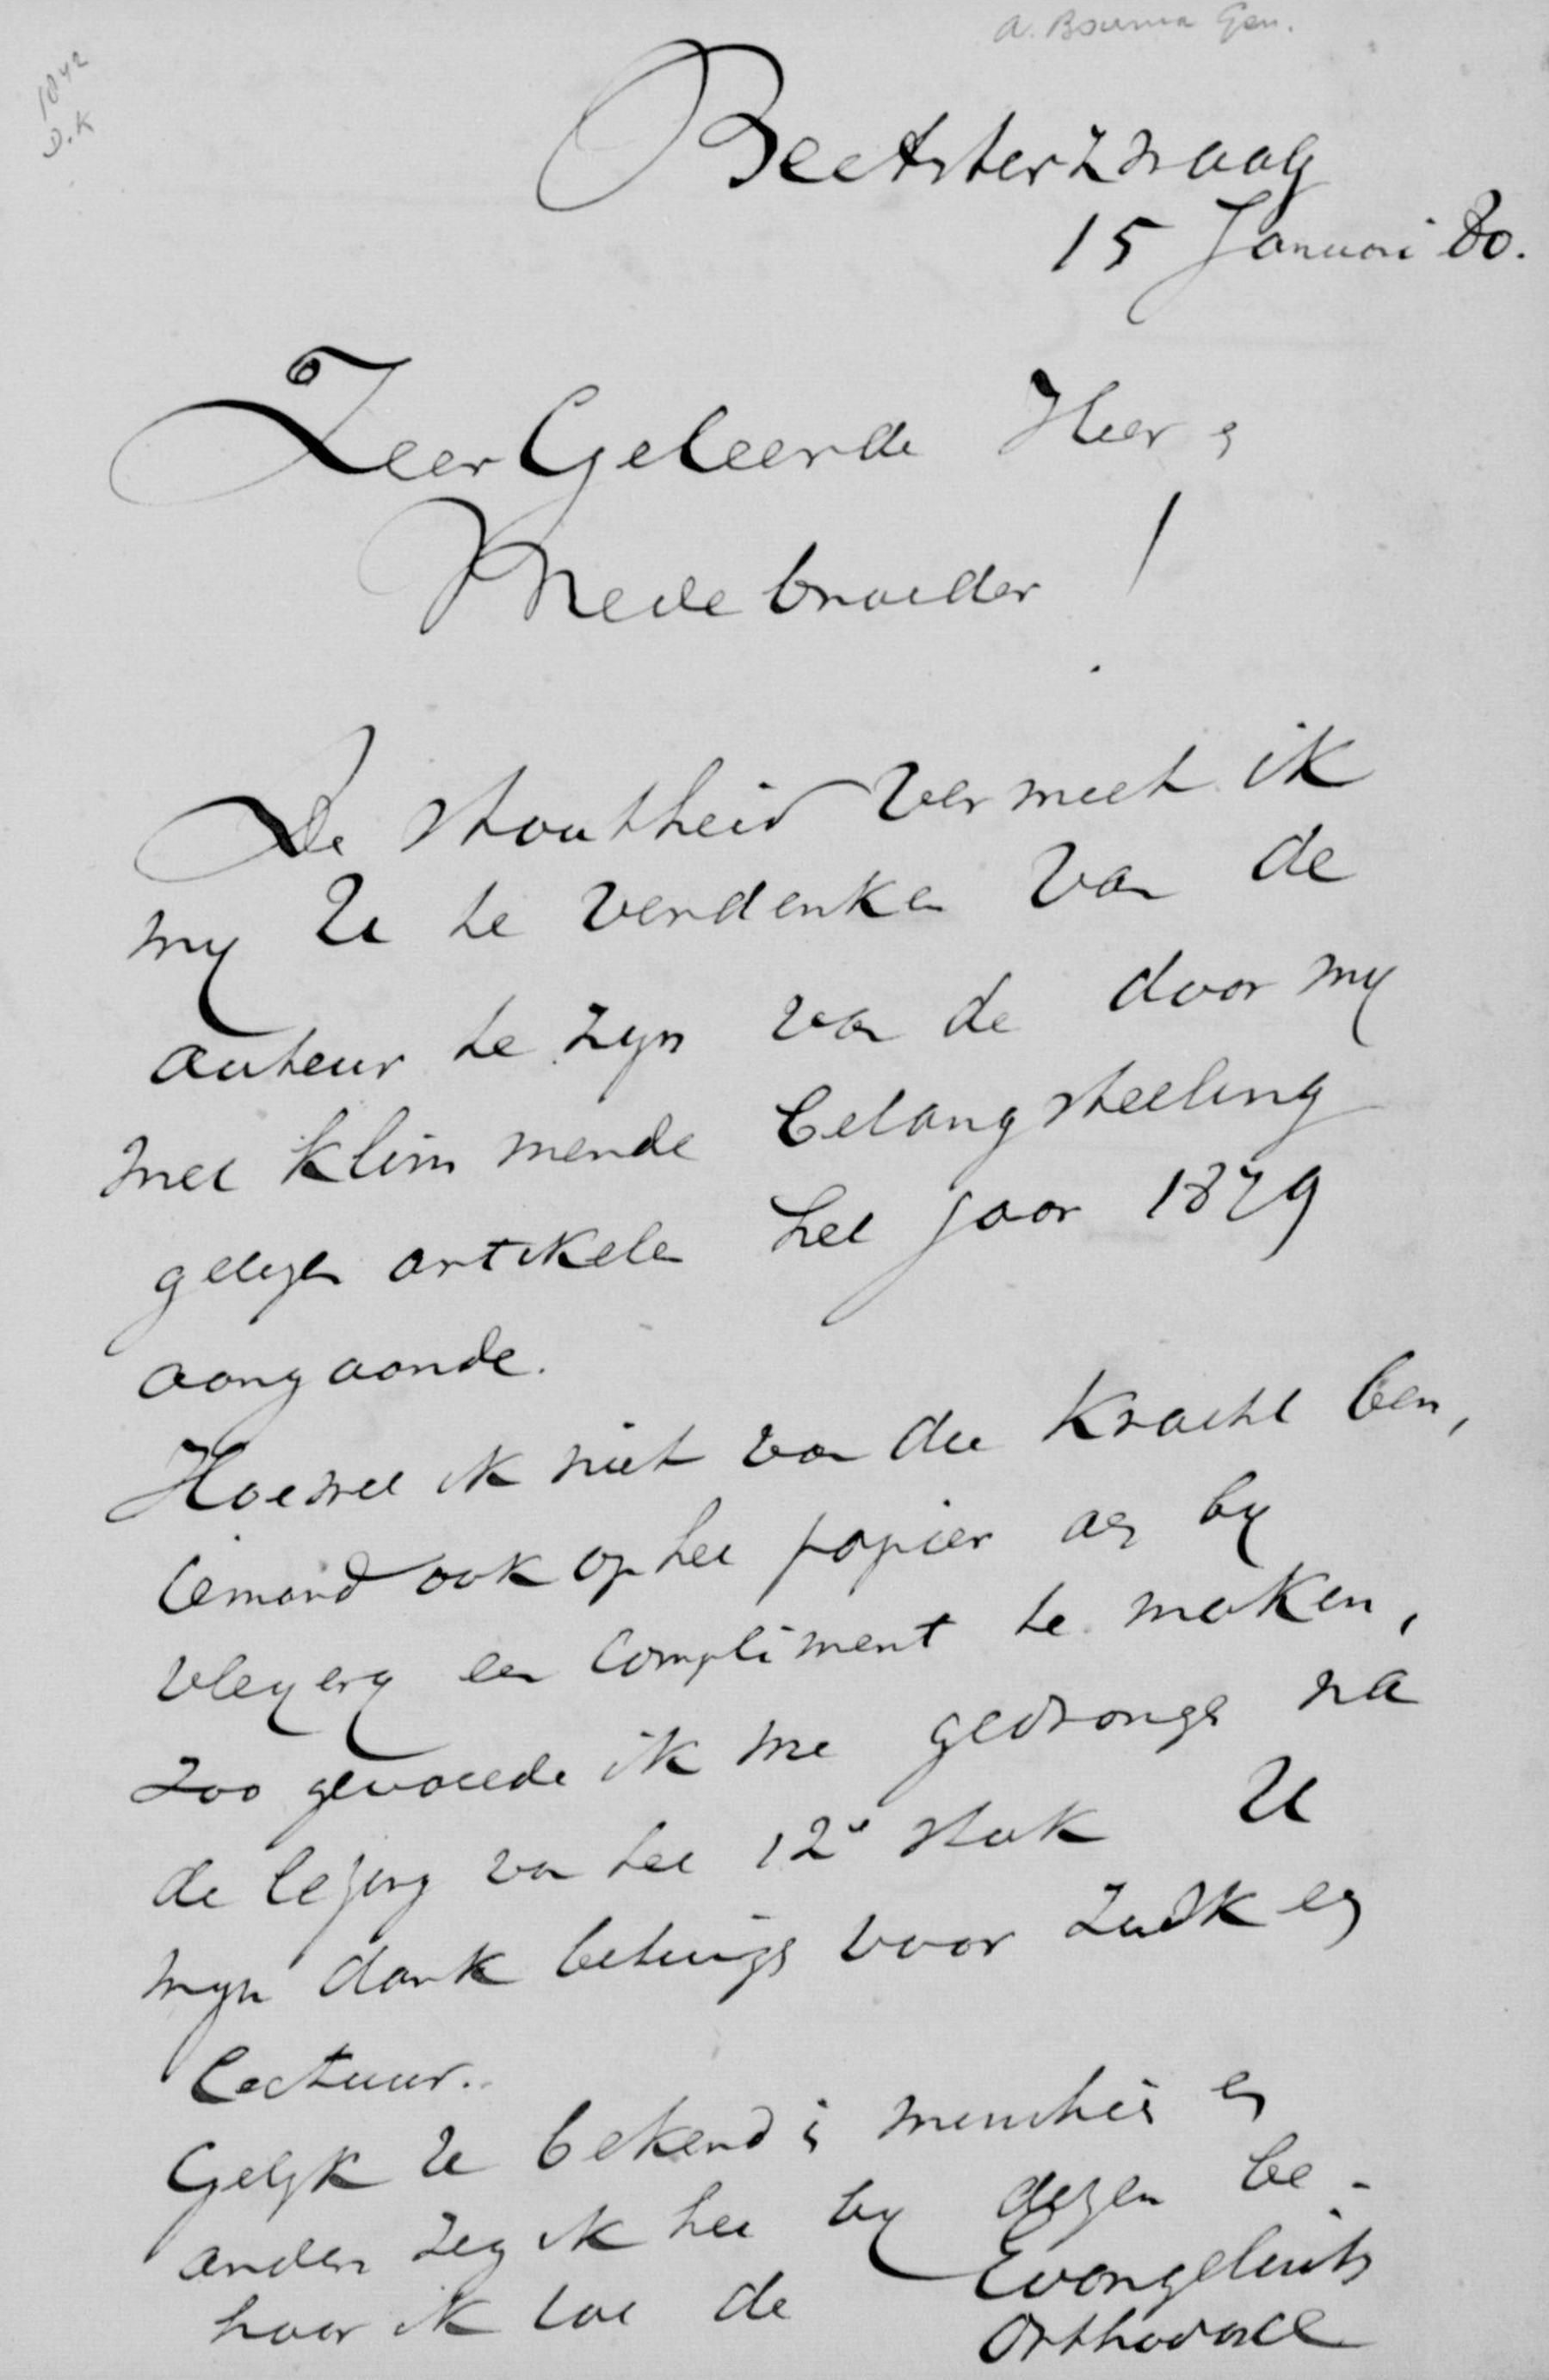 A. Bouma Gzn.
1842
D.K
Beetsterzwaag
15 Januari 80.
Zeer Geleerde Heer &
Medebroeder !
De stoutheid vermeet ik
my U te verdenken van de
auteur te zyn van de door my
met klimmende belangstelling
gelezen artikelen het jaar 1879
aangaande.
Hoewel ik niet van die kracht ben,
iemand ook op het papier als by
een compliment te maken,
zoo gevoelde ik me gedrongen na
de lezing van het 12e stuk U
myn dank betuigen voor zulk een
lectuur.
Gelyk U bekend is misschien en
anders zeg ik het by dezen be-
hoor ik tot de Evangelisch
Orthodoxe